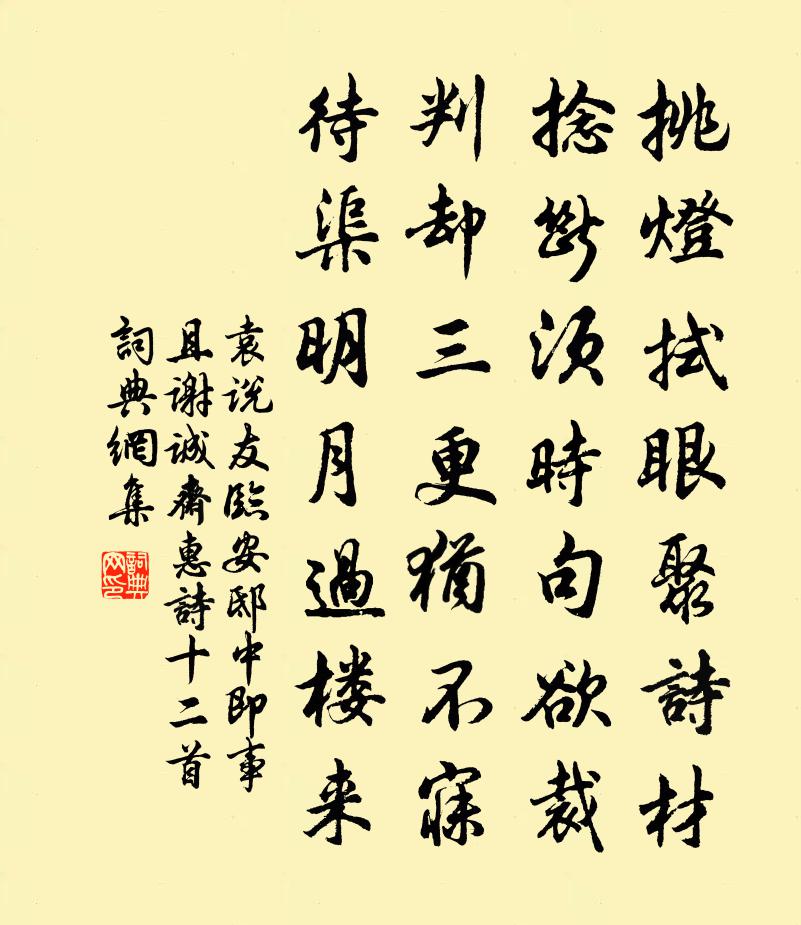 挑燈拭眼聚詩材
捻斷須時句欲裁
判却三更猶不寐
待渠明月過楼来
袁说友臨安邸中即事
且謝誠齋惠詩十二首
詞典網集
詞典网印